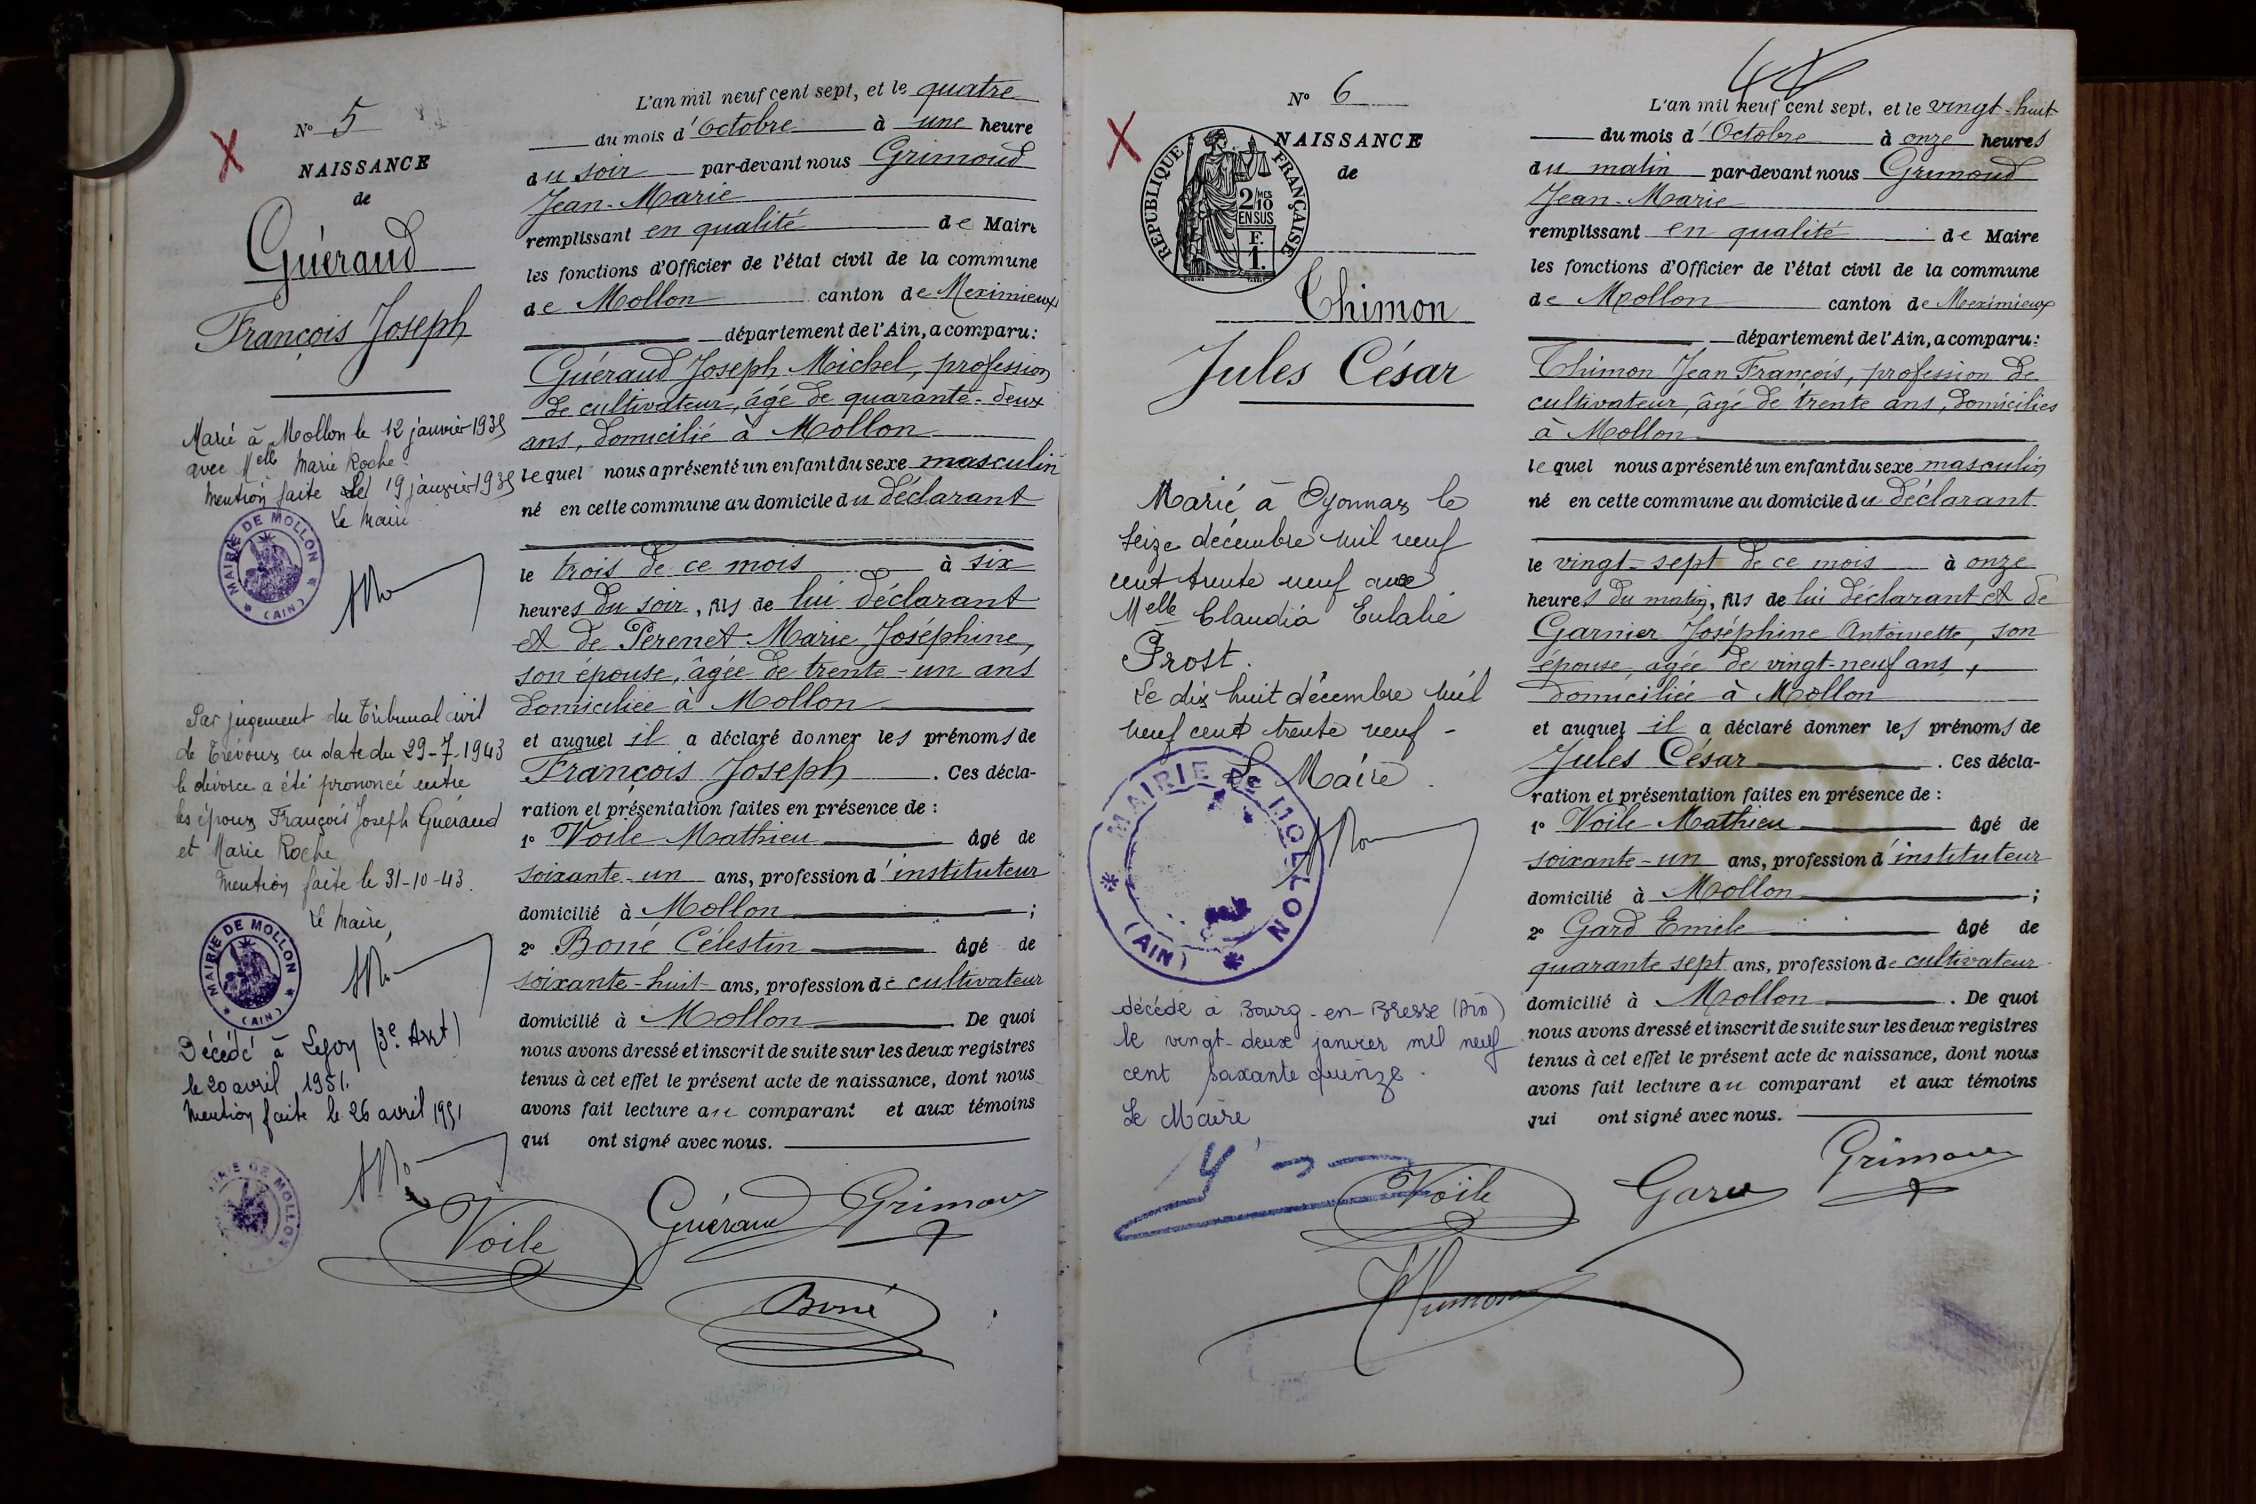 N° 5
NAISSANCE
de
Guéraud
François Joseph
Marié à Mollon le 12 janvier 1935
avec Melle Marie Roche.
Mention faite le 19 janvier 1935
Le Maire
MAIRIE DE MOLLON
(AIN)
Par jugement du Tribunal civil
de Trévoux en date du 29-7-1943
le divorce a été prononcé entre
les époux François Joseph Guéraud
et Marie Roche
Mention faite le 31-10-43.
Le Maire,
MAIRIE DE MOLLON
(AIN)
Décédé à Lyon (3e Arrt)
le 20 avril 1951.
Mention faite le 26 avril 1951
MAIRIE DE MOLLON
L'an mil neuf cent sept, et le quatre
du mois d'Octobre à une heure
du soir par-devant nous Grimoud
Jean-Marie
remplissant en qualité de Maire
les fonctions d'Officier de l'état civil de la commune
de Mollon canton de Meximieux
département de l'Ain, a comparu:
Guéraud Joseph Michel, profession
de cultivateur, âgé de quarante-deux
ans, domicilié à Mollon
lequel nous a présenté un enfant du sexe masculin
né en cette commune au domicile du déclarant
le trois de ce mois à six
heures du soir, fils de lui déclarant
et de Perenet Marie Joséphine,
son épouse, âgée de trente-un ans
domiciliée à Mollon
et auquel il a déclaré donner les prénoms de
François Joseph . Ces décla-
ration et présentation faites en présence de :
1° Voile Mathieu âgé de
soixante-un ans, profession d'instituteur
domicilié à Mollon ;
2° Boné Célestin âgé de
soixante-huit ans, profession de cultivateur
domicilié à Mollon . De quoi
nous avons dressé et inscrit de suite sur les deux registres
tenus à cet effet le présent acte de naissance, dont nous
avons fait lecture au comparant et aux témoins
qui ont signé avec nous.
Voile Guéraud Grimoud
Boné
N° 6
NAISSANCE
de
REPUBLIQUE FRANÇAISE
2/10 MES
EN SUS
F.
1.
Thimon
Jules César
Marié à Oyonnax le
seize décembre mil neuf
cent trente neuf avec
Melle Claudia Eulalie
Prost.
Le dix huit décembre mil
neuf cent trente neuf -
Le Maire.
MAIRIE De MOLLON
(AIN)
décédé à Bourg-en-Bresse (Ain)
le vingt-deux janvier mil neuf
cent soixante quinze.
Le Maire
L'an mil neuf cent sept, et le vingt-huit
du mois d'Octobre à onze heures
du matin par-devant nous Grimoud
Jean-Marie
remplissant en qualité de Maire
les fonctions d'Officier de l'état civil de la commune
de Mollon canton de Meximieux
département de l'Ain, a comparu:
Thimon Jean François, profession de
cultivateur, âgé de trente ans, domicilies
à Mollon
lequel nous a présenté un enfant du sexe masculin
né en cette commune au domicile du déclarant
le vingt-sept de ce mois à onze
heures du matin, fils de lui déclarant et de
Garnier Joséphine Antoinette, son
épouse, agée de vingt-neuf ans,
domiciliée à Mollon
et auquel il a déclaré donner les prénoms de
Jules César . Ces décla-
ration et présentation faites en présence de :
1° Voile Mathieu âgé de
soixante-un ans, profession d'instituteur
domicilié à Mollon ;
2° Gard Emile âgé de
quarante sept ans, profession de cultivateur
domicilié à Mollon . De quoi
nous avons dressé et inscrit de suite sur les deux registres
tenus à cet effet le présent acte de naissance, dont nous
avons fait lecture au comparant et aux témoins
qui ont signé avec nous.
Voile Gard Grimoud
Thimon